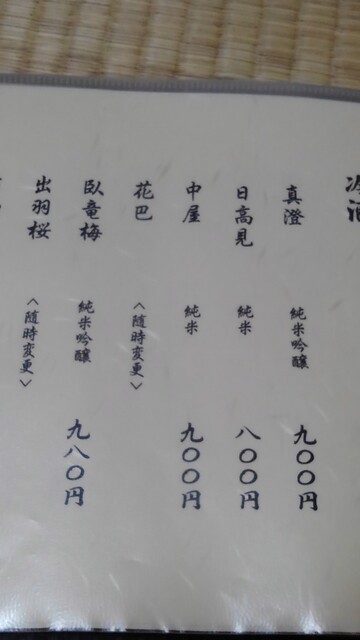 冷酒
真澄 純米吟醸 九〇〇円
日高見 純米 八〇〇円
中屋 純米 九〇〇円
花巴 〈随時変更〉
臥竜梅 純米吟醸 九八〇円
出羽桜 〈随時変更〉